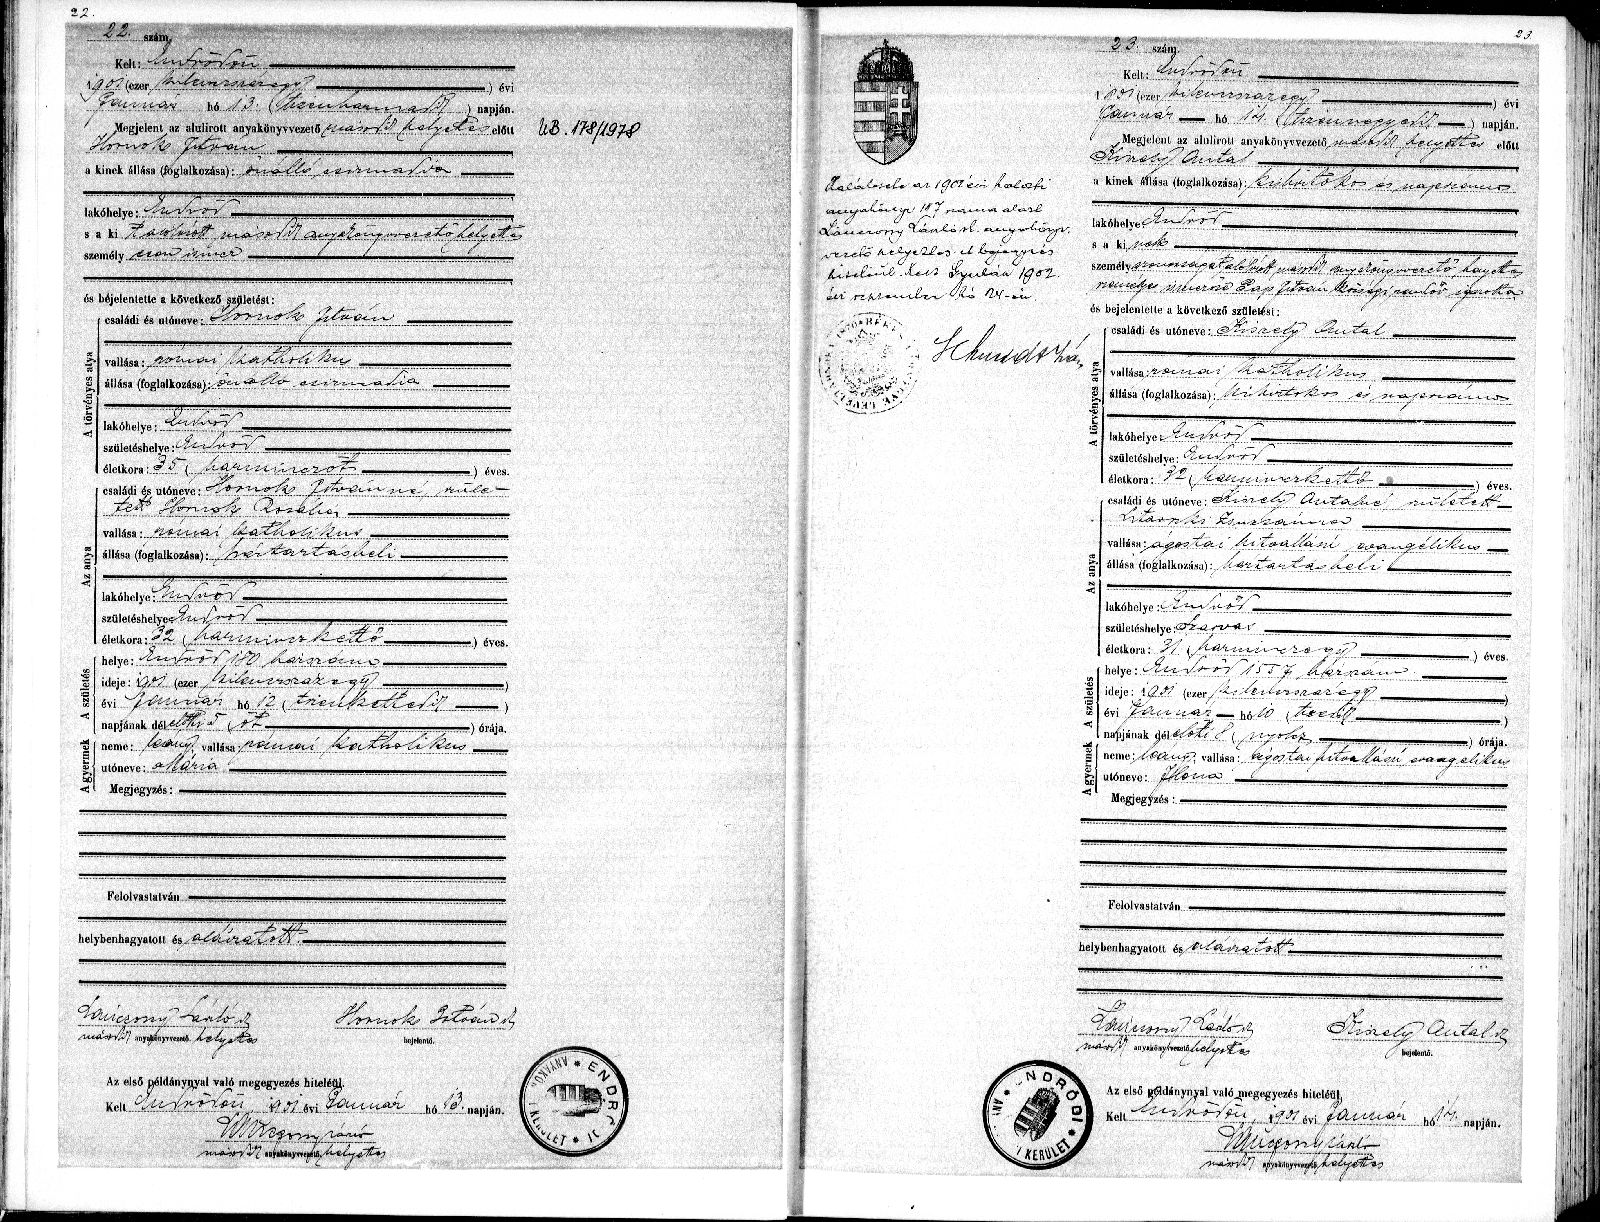 22.
22. szám.
Kelt: Endrődön
1901 (ezer kilencszázegy) évi
Január hó 13. (tizenharmadik) napján.
Megjelent az alulirott anyakönyvvezető második helyettes előtt
Hornok István
a kinek állása (foglalkozása): önálló csizmadia
lakóhelye: Endrőd
s a ki az alulirott második anyakönyvvezető helyettes
személyesen ismer
és béjelentette a következő születést:
A törvényes atya
családi és utóneve: Hornok István
vallása: római katholikus
állása (foglalkozása): önálló csizmadia
lakóhelye: Endrőd
születéshelye: Endrőd
életkora: 35 (harminczöt) éves.
Az anya
családi és utóneve: Hornok Istvánné, szüle-
tett Hornok Rozália
vallása: római katholikus
állása (foglalkozása): háztartásbeli
lakóhelye: Endrőd
születéshelye: Endrőd
életkora: 32 (harminczkettő) éves.
A születés
helye: Endrőd 180 házszám
ideje: 1901 (ezer kilencszázegy)
évi Január hó 12 (tizenkettedik)
napjának délelőtti 5 (öt) órája.
A gyermek
neme: leány, vallása: római katholikus
utóneve: Mária
Megjegyzés:
Felolvastatván
helybenhagyatott és aláiratott.
László
második anyakönyvvezető helyettes
Hornok István
bejelentő.
Az első példánynyal való megegyezés hiteléül.
Kelt Endrődön, 1901 évi Január hó 13. napján.
második anyakönyvvezető helyettes
ENDRŐDI I KERÜLET
UB. 178/1978
Halálesete az 1902 évi halotti
anyakönyv 187 száma alatt
helyettes. E bejegyzés
hiteléül. Kelt Gyulán 1902
évi szeptember hó 24-én
23.
23. szám.
Kelt: Endrődön
1901 (ezer kilencszázegy) évi
Január hó 14. (tizennegyedik) napján.
Megjelent az alulirott anyakönyvvezető második helyettes előtt
Kiszely Antal
a kinek állása (foglalkozása): kisbirtokos és napszámos
lakóhelye: Endrőd
s a ki nek
személyazonosságát alulirott második anyakönyvvezető helyettes
személyes ismerőse Pap István községi rendőr igazolta
és bejelentette a következő születést:
A törvényes atya
családi és utóneve: Kiszely Antal
vallása: római katholikus
állása (foglalkozása): kisbirtokos és napszámos
lakóhelye: Endrőd
születéshelye: Endrőd
életkora: 32 (harminczkettő) éves.
Az anya
családi és utóneve: Kiszely Antalné született
Zsuzsánna
vallása: ágostai hitvallású evangélikus
állása (foglalkozása): háztartásbeli
lakóhelye: Endrőd
születéshelye: Szarvas
életkora: 31. (harminczegy) éves.
A születés
helye: Endrőd 1557 házszám
ideje: 1901 (ezer kilencszázegy)
évi Január hó 10 (tized)
napjának délelőtti 8 (nyolcz) órája.
A gyermek
neme: leány, vallása: ágostai hitvallású evangélikus
utóneve: Ilona
Megjegyzés:
Felolvastatván
helybenhagyatott és aláiratott
László
második anyakönyvvezető helyettes
Kiszely Antal
bejelentő.
Az első példánynyal való megegyezés hiteléül.
Kelt Endrődön, 1901 évi Január hó 14. napján.
második anyakönyvvezető helyettes
ENDRŐDI I KERÜLET